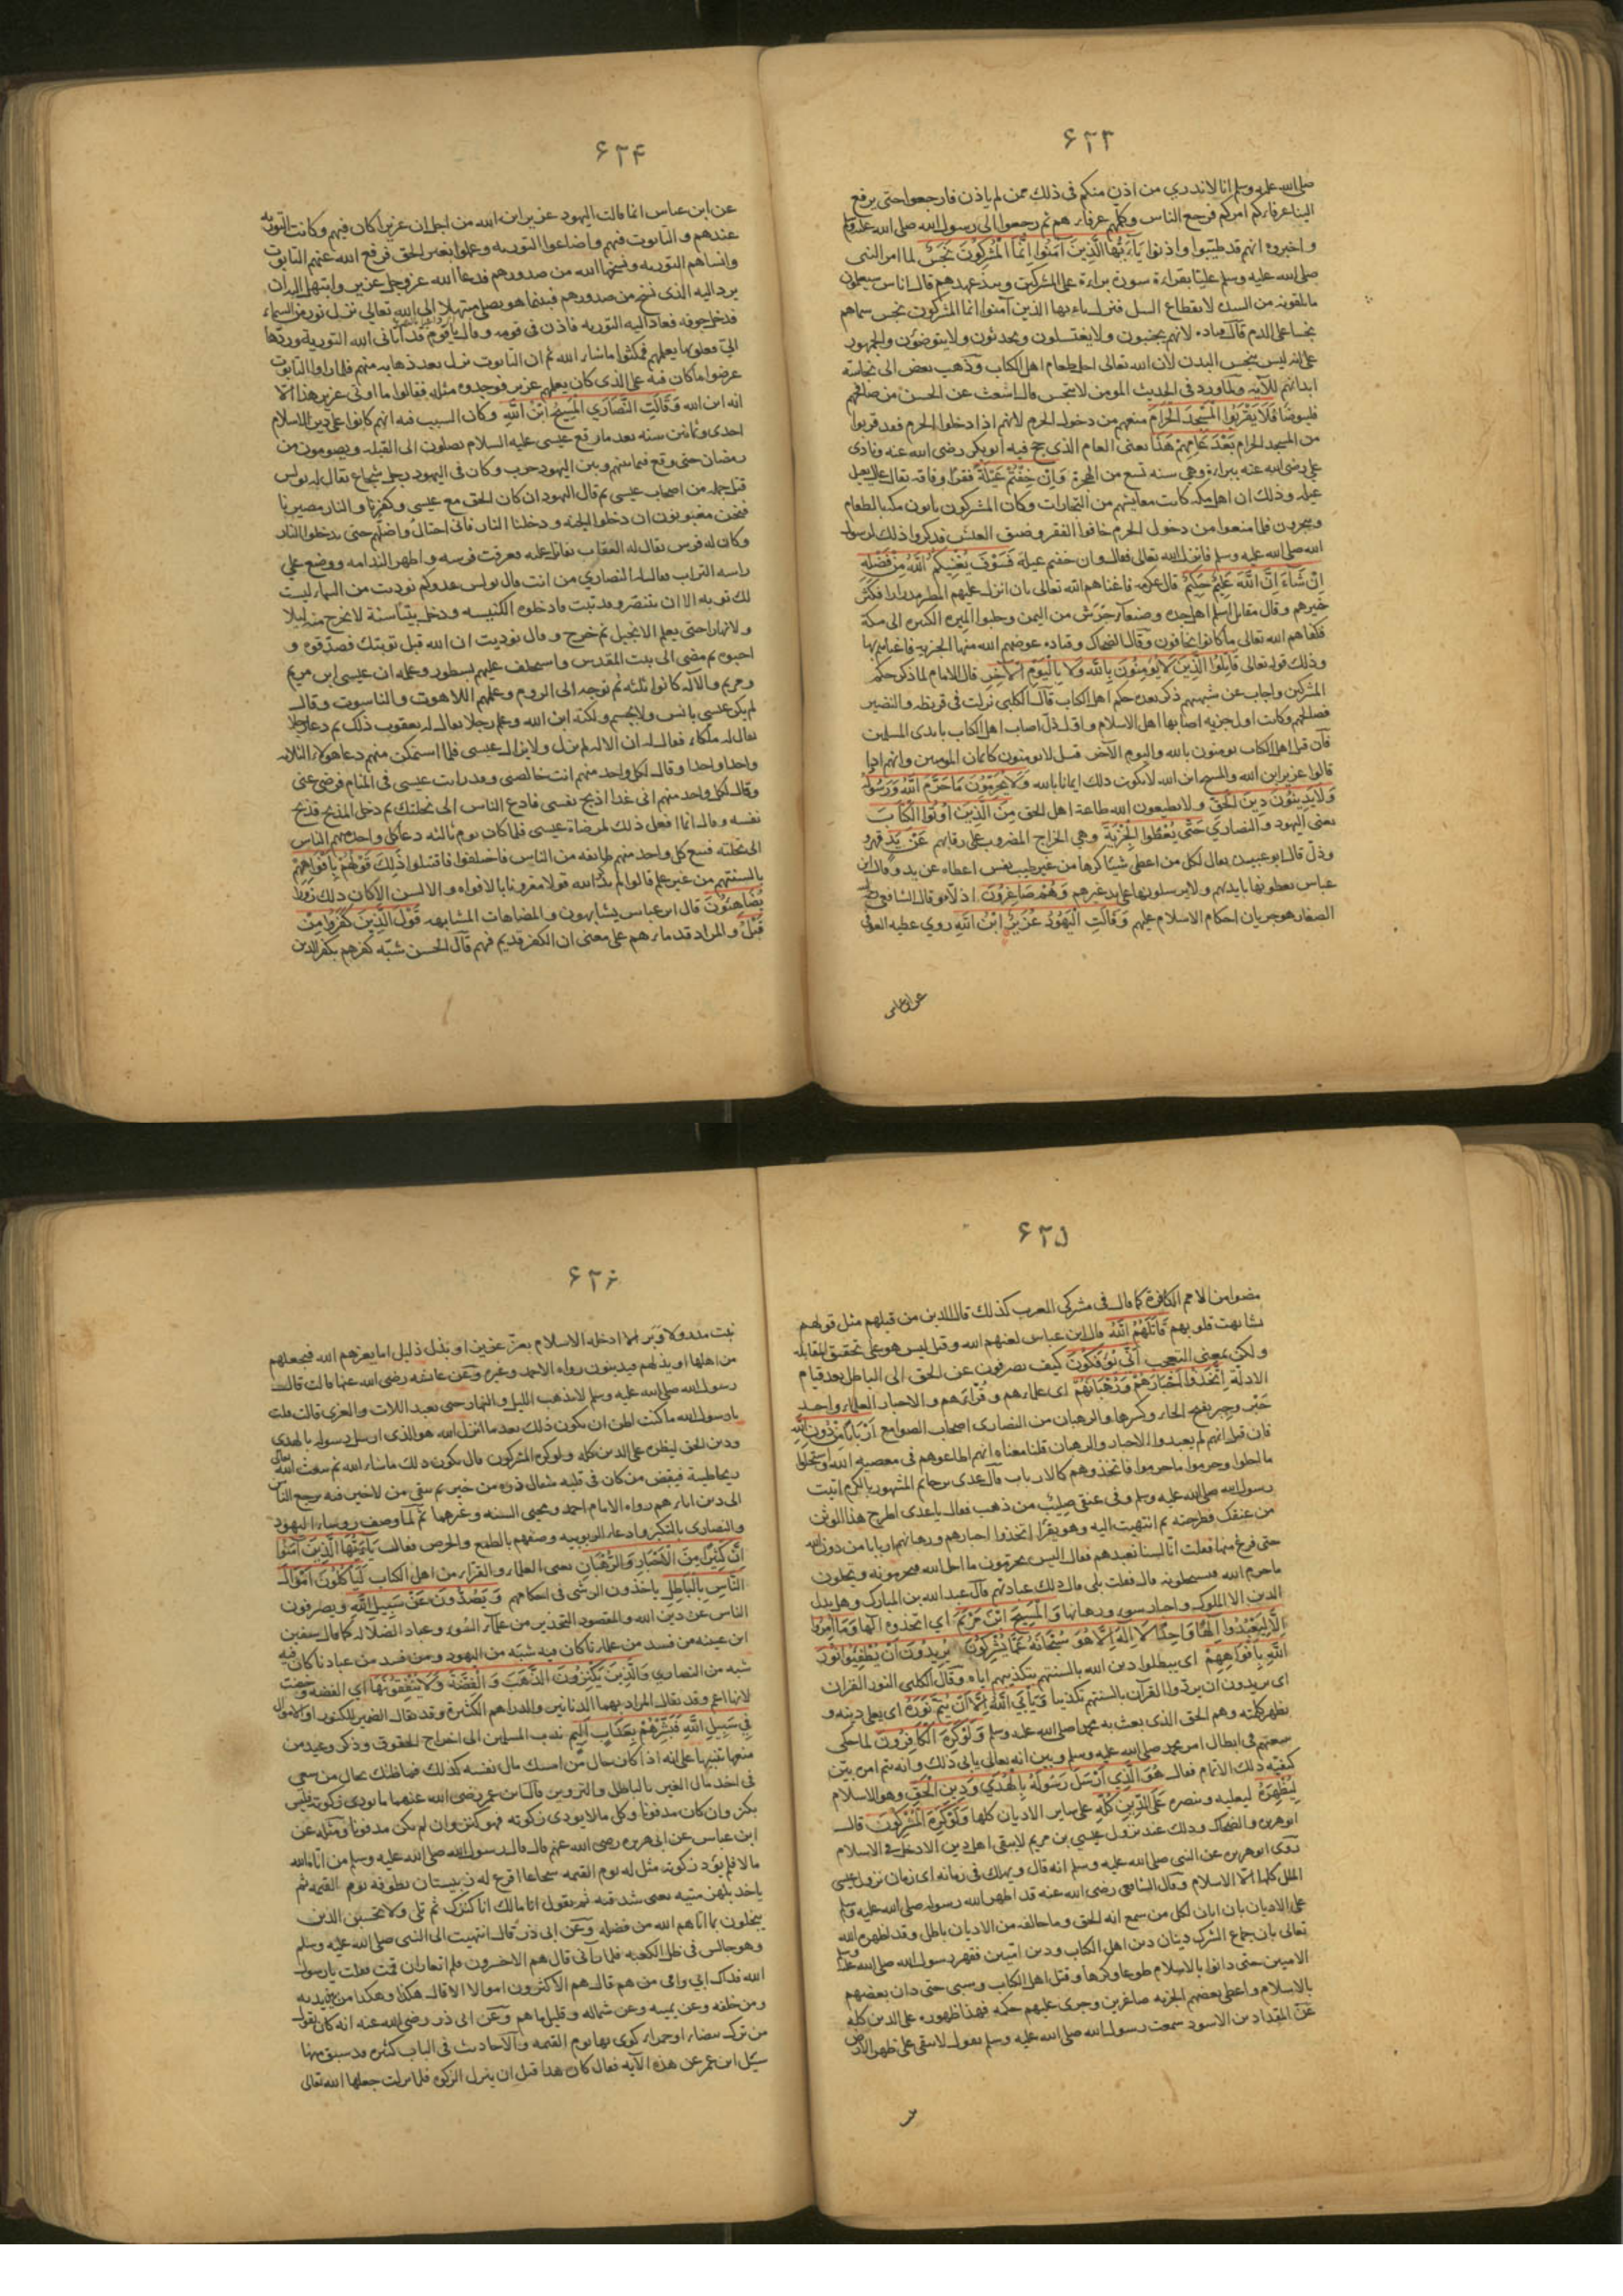 ۶۲۳
صلى الله عليه وسلم انا لا ندري من اذن منكم في ذلك ممن لم ياذن فارجعوا حتى يرفع
الينا عرفاؤكم امركم فرجع الناس وكلهم عرفاؤهم ثم رجعوا الى رسول الله صلى الله عليه وسلم
واخبروه انهم قد طيبوا واذنوا يَا أَيُّهَا الَّذِينَ آمَنُوا إِنَّمَا الْمُشْرِكُونَ نَجَسٌ لما امر النبي
صلى الله عليه وسلم عليا بقراءة سورة براءة على المشركين وينبذ عهدهم قال اناس ستعلمون
ما تلقونه من الشدة لانقطاع السبل فنزل يا ايها الذين آمنوا انما المشركون نجس سماهم
نجسا على الذم قال قتاده لانهم يجنبون ولا يغتسلون ويحدثون ولا يتوضؤن والجمهور
على انه ليس بنجس البدن لان الله تعالى احل طعام اهل الكتاب وذهب بعض الى نجاسة
ابدانهم للآية ولما ورد في الحديث المومن لا ينجس قال اشعث عن الحسن من صافحهم
فليتوضا فَلَا يَقْرَبُوا الْمَسْجِدَ الْحَرَامَ منعهم من دخول الحرم لانهم اذا دخلوا الحرم فقد قربوا
من المسجد الحرام بَعْدَ عَامِهِمْ هَذَا يعني العام الذي حج فيه ابو بكر رضي الله عنه ونادى
علي رضي الله عنه ببراءة وهي سنه تسع من الهجرة وَإِنْ خِفْتُمْ عَيْلَةً فقرا وفاقه يقال عال يعيل
عيله وذلك ان اهل مكه كانت معايشهم من التجارات وكان المشركون ياتون مكه بالطعام
ويتجرون فلما منعوا من دخول الحرم خافوا الفقر وضيق العيش فذكروا ذلك لرسول
الله صلى الله عليه وسلم فانزل الله تعالى فقال وان خفتم عيلة فَسَوْفَ يُغْنِيكُمُ اللَّهُ مِنْ فَضْلِهِ
إِنْ شَاءَ إِنَّ اللَّهَ عَلِيمٌ حَكِيمٌ قال عكرمه فاغناهم الله تعالى بان انزل عليهم المطر مدرارا فكثر
خيرهم وقال مقاتل اسلم اهل جده وصنعاء وجرش من اليمن وجلبوا الميره الكثيره الى مكة
فكفاهم الله تعالى ما كانوا يخافون وقال الضحاك وقتاده عوضهم الله منها الجزيه فاغناهم بها
وذلك قوله تعالى قَاتِلُوا الَّذِينَ لَا يُؤْمِنُونَ بِاللَّهِ وَلَا بِالْيَوْمِ الْآخِرِ قال الامام لما ذكر حكم
المشركين واجاب عن شبهتهم ذكر بعده حكم اهل الكتاب قال الكلبي نزلت في قريظه والنضير
فصالحهم وكانت اول جزيه اصابها اهل الاسلام واول ذل اصاب اهل الكتاب بايدى المسلمين
فان قيل اهل الكتاب يومنون بالله واليوم الآخر قيل لا يومنون كايمان المومنين وانهم اذا
قالوا عزير ابن الله والمسيح ابن الله لا يكون ذلك ايمانا بالله وَلَا يُحَرِّمُونَ مَا حَرَّمَ اللَّهُ وَرَسُولُهُ
وَلَا يَدِينُونَ دِينَ الْحَقِّ ولا يطيعون الله طاعة اهل الحق مِنَ الَّذِينَ أُوتُوا الْكِتَابَ
يعني اليهود والنصاري حَتَّى يُعْطُوا الْجِزْيَةَ وهي الخراج المضروب على رقابهم عَنْ يَدٍ قهر
وذل قال ابو عبيده يقال لكل من اعطى شيئا كرها من غير طيب نفس اعطاه عن يد وقال ابن
عباس يعطونها بايديهم ولا يرسلون بها على يد غيرهم وَهُمْ صَاغِرُونَ اذلاء وقال الشافعي
الصغار هو جريان احكام الاسلام عليهم وَقَالَتِ الْيَهُودُ عُزَيْرٌ ابْنُ اللَّهِ روي عطيه العوفي
عن ابن عباس
۶۲۴
عن ابن عباس انما قالت اليهود عزير ابن الله من اجل ان عزيرا كان فيهم وكانت التوريه
عندهم والتابوت فيهم واضاعوا التوريه وعملوا بغير الحق فرفع الله عنهم التابوت
وانساهم التوريه ونسخها الله من صدورهم فدعا الله عز وجل عزير وابتهل اليه ان
يرد اليه الذى نسخ من صدورهم فبينما هو يصلى مبتهلا الى الله تعالى نزل نور من السماء
فدخل جوفه فعاد اليه التوريه فاذن في قومه وقال يا قوم قد آتاني الله التوريه وردها
الي فعلق بها يعلمهم فمكثوا ما شاء الله ثم ان التابوت نزل بعد ذهابه منهم فلما راوا التابوت
عرضوا ما كان فيه على الذى كان يعلمهم عزير فوجدوه مثله فقالوا ما اوتى عزير هذا الا
انه ابن الله وَقَالَتِ النَّصَارَي الْمَسِيحُ ابْنُ اللَّهِ وكان السبب فيه انهم كانوا على دين الاسلام
احدى وثمانين سنه بعد ما رفع عيسى عليه السلام يصلون الى القبله ويصومون
رمضان حتى وقع فيما بينهم وبين اليهود حرب وكان في اليهود رجل شجاع يقال له بولس
قتل جمله من اصحاب عيسى ثم قال لليهود ان كان الحق مع عيسى وكفرنا والنار مصيرنا
فنحن مغبونون ان دخلوا الجنه ودخلنا النار فاني احتال واضلهم حتى يدخلوا النار
وكان له فرس يقال له العقاب يقاتل عليه فعرقب فرسه واظهر الندامه ووضع على
راسه التراب فقال له النصاري من انت قال بولس عدوكم نوديت من السماء ليست
لك توبه الا ان تتنصر وقد تبت فادخلوه الكنيسه ودخل بيتا سنة لا يخرج منه ليلا
ولا نهارا حتى يعلم الانجيل ثم خرج وقال نوديت ان الله قبل توبتك فصدقوه و
احبوه ثم مضى الى بيت المقدس واستخلف عليهم نسطور وعلمه ان عيسى ابن مريم
ومريم والاله كانوا ثلثه ثم توجه الى الروم وعلمهم اللاهوت والناسوت وقال
لم يكن عيسى بانس ولا بجسم ولكنه ابن الله وعلم رجلا يقال له يعقوب ذلك ثم دعا رجلا
يقال له ملكاء فقال له ان الاله لم يزل ولا يزال عيسى فلما استمكن منهم دعا هولاء الثلاثه
واحدا واحدا وقال لكل واحد منهم انت خالصتي وقد رايت عيسى في المنام فرضى عني
وقال لكل واحد منهم اني غدا اذبح نفسي فادع الناس الى نحلتك ثم دخل المذبح فذبح
نفسه وقال انما افعل ذلك لمرضاة عيسى فلما كان يوم ثالثه دعا كل واحد منهم الناس
الى نحلته فتبع كل واحد منهم طائفه من الناس فاختلفوا فاقتتلوا ذَلِكَ قَوْلُهُمْ بِأَفْوَاهِهِمْ
بالسنتهم من غير علم قالوا لم يذكر الله قولا مقرونا بالافواه والالسن الا كان ذلك زورا
يُضَاهِئُونَ قال ابن عباس يشابهون والمضاهات المشابهه قَوْلَ الَّذِينَ كَفَرُوا مِنْ
قَبْلُ والمراد قدماءهم على معنى ان الكفر قديم فيهم قال الحسن شبه كفرهم بكفر الذين
۶۲۵
مضوا من الامم الكافرة كما قال في مشركي العرب كذلك قال الذين من قبلهم مثل قولهم
تشابهت قلوبهم قَاتَلَهُمُ اللَّهُ قال ابن عباس لعنهم الله وقيل ليس هو على تحقيق المقابله
ولكن بمعنى التعجب أَنَّى يُؤْفَكُونَ كيف يصرفون عن الحق الى الباطل بعد قيام
الادلة اتَّخَذُوا أَحْبَارَهُمْ وَرُهْبَانَهُمْ اى علماءهم وقراءهم والاحبار العلماء واحد
حَبر وحِبر بفتح الحاء وكسرها والرهبان من النصارى اصحاب الصوامع أَرْبَابًا مِنْ دُونِ اللَّهِ
فان قيل انهم لم يعبدوا الاحبار والرهبان قلنا معناه انهم اطاعوهم في معصيه الله واستحلوا
ما احلوا وحرموا ما حرموا فاتخذوهم كالارباب قال عدى بن حاتم المشهور بالكرم اتيت
رسول الله صلى الله عليه وسلم وفي عنقي صليب من ذهب فقال يا عدى اطرح هذا الوثن
من عنقك فطرحته ثم انتهيت اليه وهو يقرأ اتخذوا احبارهم ورهبانهم اربابا من دون الله
حتى فرغ منها فقلت انا لسنا نعبدهم فقال اليس يحرمون ما احل الله فتحرمونه ويحلون
ما حرم الله فتستحلونه قال فقلت بلى قال ذلك عبادتهم قال عبد الله بن المبارك وهل بدل
الدين الا الملوك واحبار سوء ورهبانها وَالْمَسِيحَ ابْنَ مَرْيَمَ اي اتخذوه الها وَمَا أُمِرُوا
إِلَّا لِيَعْبُدُوا إِلَهًا وَاحِدًا لَا إِلَهَ إِلَّا هُوَ سُبْحَانَهُ عَمَّا يُشْرِكُونَ يُرِيدُونَ أَنْ يُطْفِئُوا نُورَ
اللَّهِ بِأَفْوَاهِهِمْ اى يبطلوا دين الله بالسنتهم بتكذيبهم اياه وقال الكلبى النور القران
اى يريدون ان يردوا القرآن بالسنتهم تكذيبا وَيَأْبَى اللَّهُ إِلَّا أَنْ يُتِمَّ نُورَهُ اى يعلى دينه و
يظهر كلمته وهم الحق الذى بعث به محمدا صلى الله عليه وسلم وَلَوْ كَرِهَ الْكَافِرُونَ لما حكى
سعيهم في ابطال امر محمد صلى الله عليه وسلم وبين انه تعالى يابى ذلك وانه يتم امره بين
كيفيه ذلك الاتمام فقال هُوَ الَّذِي أَرْسَلَ رَسُولَهُ بِالْهُدَى وَدِينِ الْحَقِّ وهو الاسلام
لِيُظْهِرَهُ ليعليه وينصره عَلَى الدِّينِ كُلِّهِ على ساير الاديان كلها وَلَوْ كَرِهَ الْمُشْرِكُونَ قال
ابو هريره والضحاك وذلك عند نزول عيسى بن مريم لا يبقى اهل دين الا دخل في الاسلام
روى ابو هريره عن النبى صلى الله عليه وسلم انه قال ويهلك في زمانه اى زمان نزول عيسى
الملل كلها الا الاسلام وقال الشافعى رضى الله عنه قد اظهر الله رسوله صلى الله عليه وسلم
على الاديان بان ابان لكل من سمع انه الحق وما خالفه من الاديان باطل وقد اظهره الله
تعالى بان جماع الشرك دينان دين اهل الكتاب ودين اميين فقهر رسول الله صلى الله عليه وسلم
الاميين حتى دانوا بالاسلام طوعا وكرها وقتل اهل الكتاب وسبى حتى دان بعضهم
بالاسلام واعطى بعضهم الجزيه صاغرين وجرى عليهم حكمه فهذا ظهوره على الدين كله
عن المقداد بن الاسود سمعت رسول الله صلى الله عليه وسلم يقول لا يبقى على ظهر الارض
۶۲۶
بيت مدر ولا وبر الا ادخله الاسلام بعز عزيز او بذل ذليل اما يعزهم الله فيجعلهم
من اهلها او يذلهم فيدينون رواه الاحمد وغيره وعن عائشه رضى الله عنها قالت قال
رسول الله صلى الله عليه وسلم لا يذهب الليل والنهار حتى يعبد اللات والعزى قالت قلت
يا رسول الله ما كنت اظن ان يكون ذلك بعد ما انزل الله هو الذى ارسل رسوله بالهدى
ودين الحق ليظهره على الدين كله ولو كره المشركون قال يكون ذلك ما شاء الله ثم يبعث الله تعالى
ريحا طيبة فيقبض من كان في قلبه مثقال ذره من خير ثم يبقى من لا خير فيه يرجع الناس
الى دين اباءهم رواه الامام احمد ومحيى السنه وغيرهما ثم لما وصف روساء اليهود
والنصارى بالتكبر وادعاء الربوبيه وصفهم بالطمع والحرص فقال يَا أَيُّهَا الَّذِينَ آمَنُوا
إِنَّ كَثِيرًا مِنَ الْأَحْبَارِ وَالرُّهْبَانِ يعنى العلماء والقراء من اهل الكتاب لَيَأْكُلُونَ أَمْوَالَ
النَّاسِ بِالْبَاطِلِ ياخذون الرشى في احكامهم وَيَصُدُّونَ عَنْ سَبِيلِ اللَّهِ ويصرفون
الناس عن دين الله والمقصود التحذير من علماء السوء وعباد الضلاله كما قال سفين
ابن عيينه من فسد من علمائنا كان فيه شبه من اليهود ومن فسد من عبادنا كان فيه
شبه من النصاري وَالَّذِينَ يَكْنِزُونَ الذَّهَبَ وَالْفِضَّةَ وَلَا يُنْفِقُونَهَا اي الفضه وخصت
لانها اعم وقد يقال المراد بهما الدنانير والدراهم الكثيرة وقد يقال الضمير للكنوز او الاموال
فِي سَبِيلِ اللَّهِ فَبَشِّرْهُمْ بِعَذَابٍ أَلِيمٍ ندب المسلمين الى اخراج الحقوق وذكر وعيد من
منعها تنبيها على انه اذا كان حال من امسك مال نفسه كذلك فما ظنك بحال من سعى
في اخذ مال الغير بالباطل والتزوير قال ابن عمر رضى الله عنهما ما يودى زكوته فليس
بكنز وان كان مدفونا وكل مال لا يودى زكوته فهو كنز وان لم يكن مدفونا ومثله عن
ابن عباس عن ابى هريره رضى الله عنهم قال قال رسول الله صلى الله عليه وسلم من اتاه الله
مالا فلم يؤد زكوته مثل له يوم القيمه شجاعا اقرع له زبيبتان يطوقه يوم القيمه ثم
ياخذ بلهزمتيه يعنى شدقيه ثم يقول انا مالك انا كنزك ثم تلى ولا تحسبن الذين
يبخلون بما اتاهم الله من فضله وعن ابى ذر قال انتهيت الى النبى صلى الله عليه وسلم
وهو جالس في ظل الكعبه فلما رآنى قال هم الاخسرون فلم اتقار ان قمت فقلت يا رسول
الله فداك ابي وامى من هم قال هم الاكثرون اموالا الا من قال هكذا وهكذا من بين يديه
ومن خلفه وعن يمينه وعن شماله وقليل ما هم وعن ابى ذر رضى الله عنه انه كان يقول
من ترك بيضاء او حمراء كوى بها يوم القيمه والاحاديث في الباب كثيره قد سبق منها
سئل ابن عمر عن هذه الآيه فقال كان هذا قبل ان ينزل الزكوه فلما نزلت جعلها الله تعالى